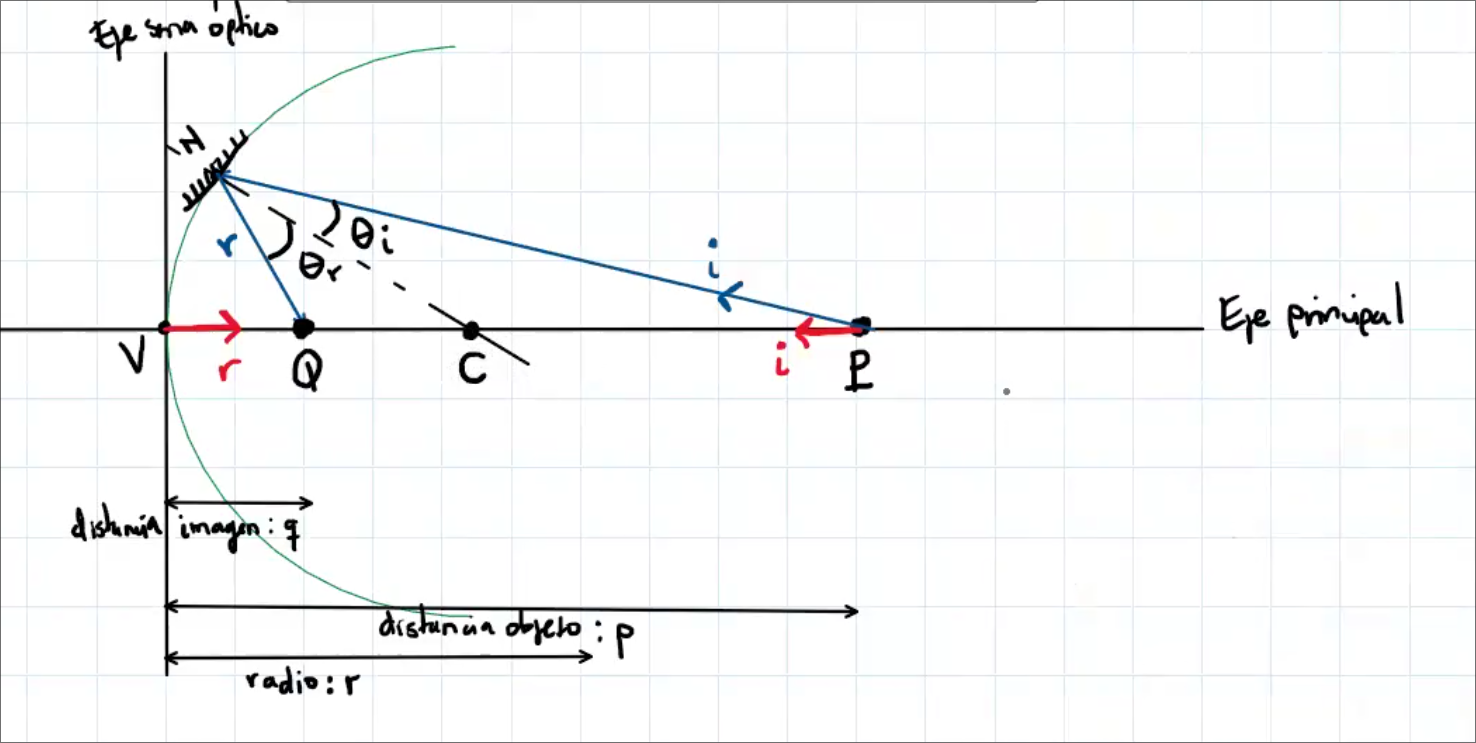 Eje óptico
N
θi
θr
r
i
Eje principal
V
r
Q
C
i
P
distancia imagen: q
distancia objeto: p
radio: r